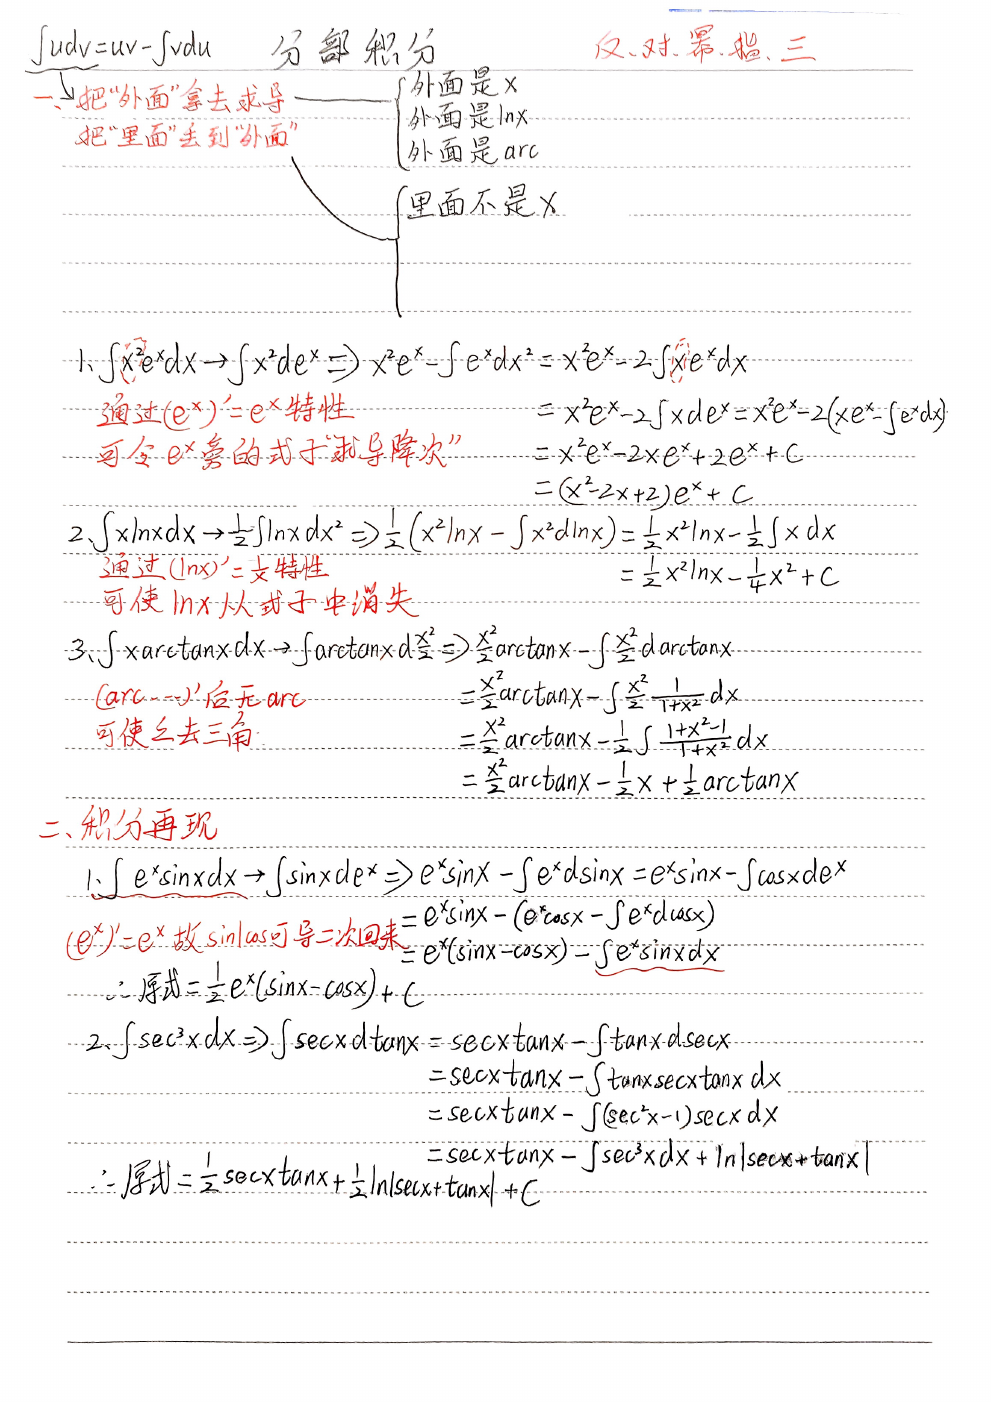 ∫udv=uv-∫vdu 分部积分 反.对.幂.指.三
一、把“外面”拿去求导
把“里面”丢到“外面”
外面是x
外面是lnx
外面是arc
里面不是x
1、∫x²eˣdx→∫x²deˣ⇒x²eˣ-∫eˣdx²=x²eˣ-2∫xeˣdx
通过(eˣ)′=eˣ特性
=x²eˣ-2∫xdeˣ=x²eˣ-2(xeˣ-∫eˣdx)
可令eˣ旁的式子“求导降次”
=x²eˣ-2xeˣ+2eˣ+C
=(x²-2x+2)eˣ+C
2、∫xlnxdx→½∫lnxdx²⇒½(x²lnx-∫x²dlnx)=½x²lnx-½∫xdx
通过(lnx)′=1/x特性
=½x²lnx-¼x²+C
可使lnx从式子中消失
3、∫xarctanxdx→∫arctanxd x²/2⇒x²/2 arctanx-∫x²/2 darctanx
(arc---)′后无arc
=x²/2 arctanx-∫x²/2 1/(1+x²) dx
可使之去三角
=x²/2 arctanx-½∫(1+x²-1)/(1+x²) dx
=x²/2 arctanx-½x+½arctanx
二、积分再现
1、∫eˣsinxdx→∫sinxdeˣ⇒eˣsinx-∫eˣdsinx=eˣsinx-∫cosxdeˣ
=eˣsinx-(eˣcosx-∫eˣdcosx)
(eˣ)′=eˣ故sin|cos可导二次回来
=eˣ(sinx-cosx)-∫eˣsinxdx
∴原式=½eˣ(sinx-cosx)+C
2、∫sec³xdx⇒∫secxdtanx=secxtanx-∫tanxdsecx
=secxtanx-∫tanxsecxtanxdx
=secxtanx-∫(sec²x-1)secxdx
=secxtanx-∫sec³xdx+ln|secx+tanx|
∴原式=½secxtanx+½ln|secx+tanx|+C